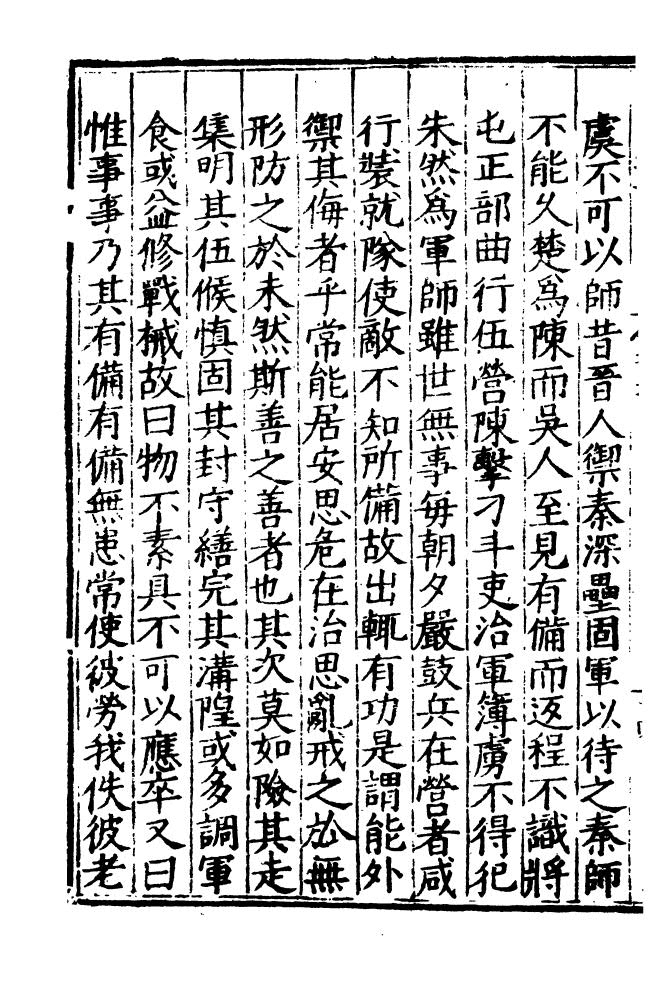 虞不可以師昔晉人禦秦深壘固軍以待之秦師
不能久楚爲陳而吳人至見有備而返程不識將
屯正部曲行伍營陳擊刁斗吏治軍簿虜不得犯
朱然爲軍師雖世無事每朝夕嚴鼓兵在營者咸
行裝就隊使敵不知所備故出輒有功是謂能外
禦其侮者乎常能居安思危在治思亂戒之於無
形防之於未然斯善之善者也其次莫如險其走
集明其伍候慎固其封守繕完其溝隍或多調軍
食或益修戰械故曰物不素具不可以應卒又曰
惟事事乃其有備有備無患常使彼勞我佚彼老